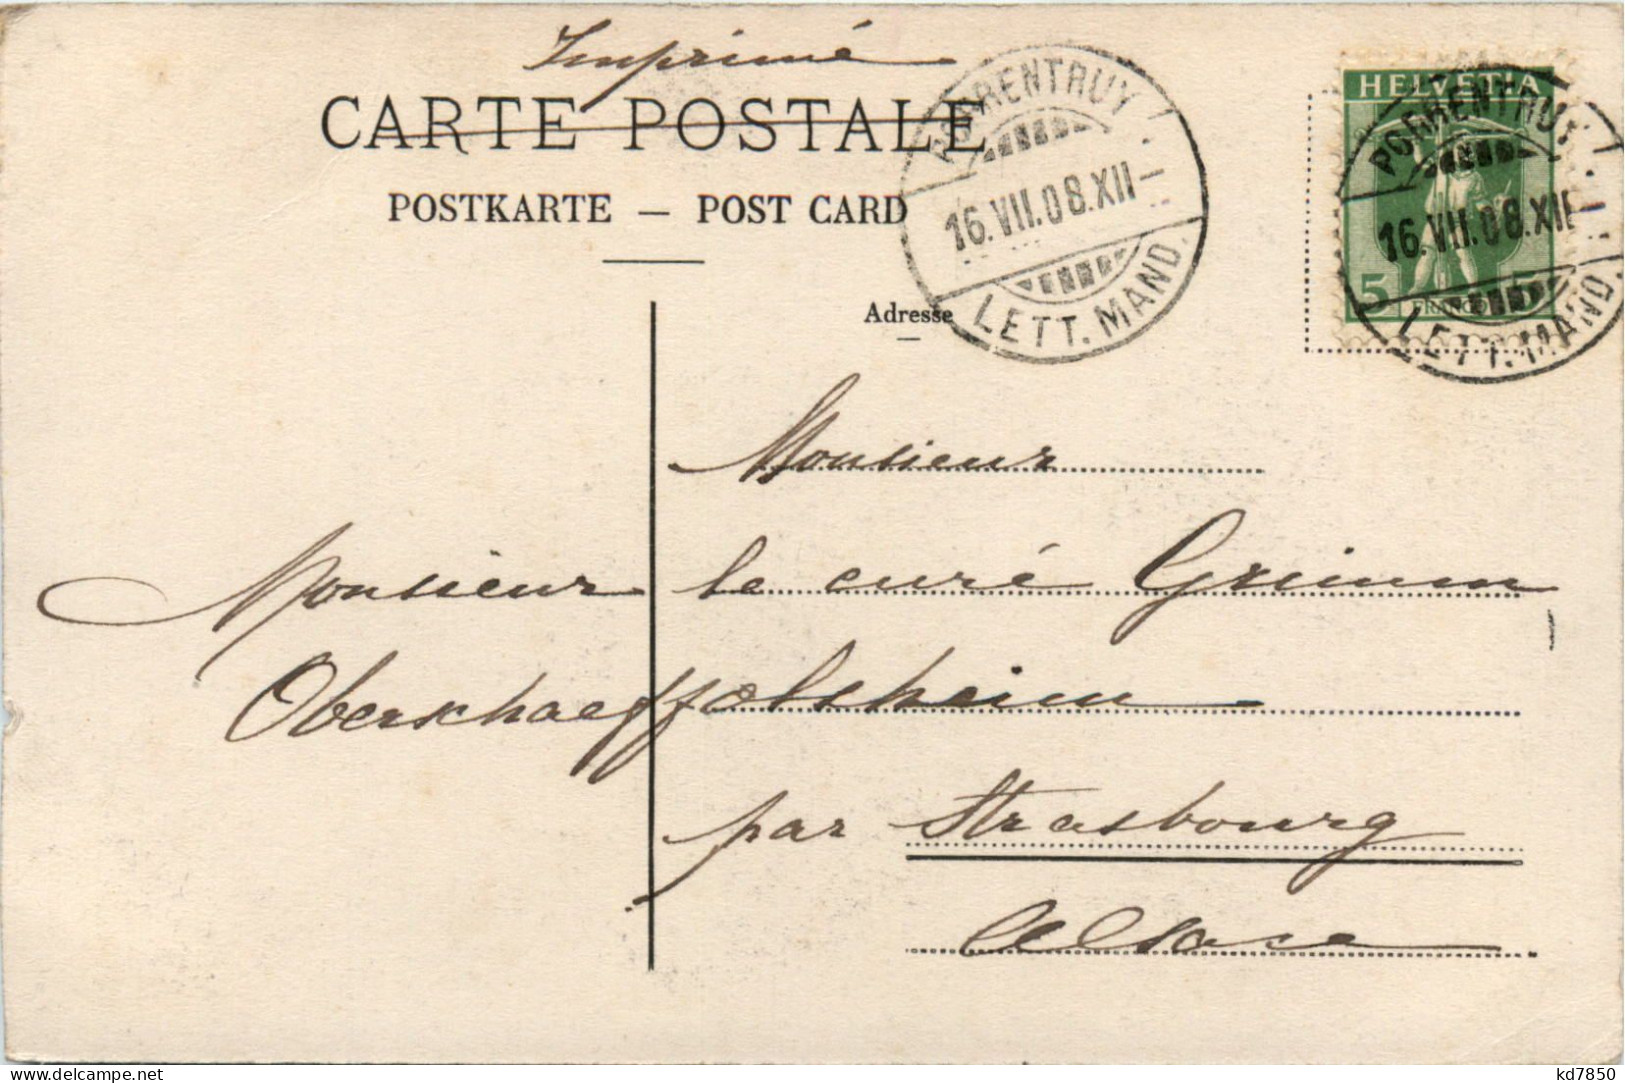 Imprimé
CARTE POSTALE
POSTKARTE — POST CARD
PORRENTRUY
16.VII.08.XII
LETT. MAND.
HELVETIA
5 FRANCO 5
PORRENTRUY
16.VII.08.XII
LETT. MAND.
Adresse
Monsieur
Monsieur le curé Grimm
Oberschaeffolsheim
par Strasbourg
Alsace
kd7850